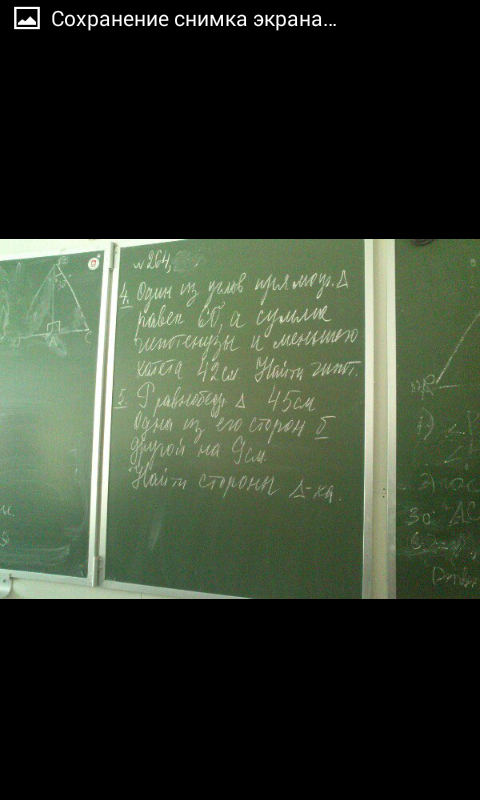 Сохранение снимка экрана...
№ 264,
4. Один из углов прямоуг. Δ
равен 60°, а сумма
гипотенузы и меньшего
катета 42см. Найти гипот.
5. P равнобедр Δ 45см
Одна из его сторон б
другой на 9см.
Найти стороны Δ-ка.